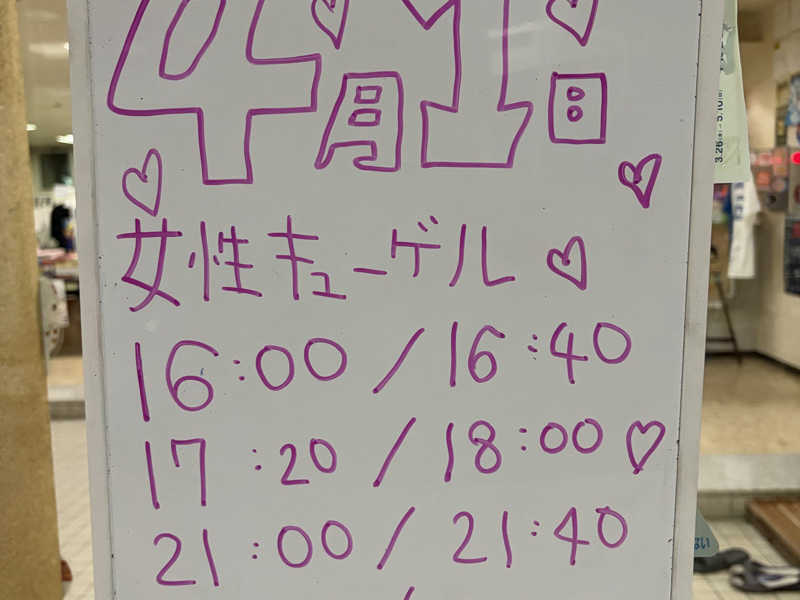 4月1日
女性キューゲル
16:00 / 16:40
17:20 / 18:00
21:00 / 21:40